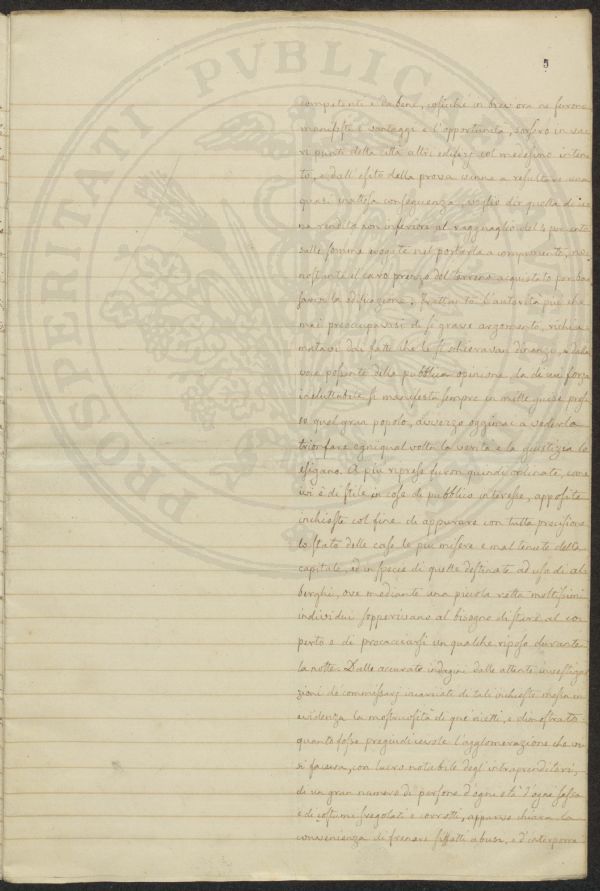 5
competente e dabene, cosicché in brev'ora ne furono
manifesti i vantaggi e l'opportunità, sorsero in va-
ri punti della città altri edifizj col medesimo inten-
to, e dall'esito della prova venne a resultare una
quasi inattesa conseguenza, voglio dir quella di u-
na rendita non inferiore al ragguaglio del 4 per cento
sulle somme erogate nel portarla a compimento, no-
nostante il caro prezzo del terreno acquistato per ba-
sarvi la edificazione. Frattanto l'autorità più che
mai preoccupavasi di sì grave argomento, richia-
matavi dai fatti che le si schieravan dinanzi, e dalla
voce possente della pubblica opinione, la di cui forza
ineluttabile si manifesta sempre in mille guise pres-
so quel gran popolo, avvezzo oggimai a vederla
trionfare ogniqualvolta la verità e la giustizia lo
esigano. A più riprese furon quindi ordinate, come
ivi è di stile in cose di pubblico interesse, apposite
inchieste col fine di appurare con tutta precisione
lo stato delle case le più misere e mal tenute della
capitale, ed in specie di quelle destinate ad uso di al-
berghi, ove mediante una piccola retta moltissimi
individui sopperivano al bisogno di stare al co-
perto e di procacciarsi un qualche riposo durante
la notte. Dalle accurate indagini dalle attente investiga-
zioni de' commissarj incaricati di tali inchieste messa in
evidenza la mostruosità di que' ricetti, e dimostrato
quanto fosse pregiudicevole l'agglomerazione che vi
si faceva, con lucro notabile degl'intraprenditori,
di un gran numero di persone d'ogni età d'ogni sesso
e di costumi sregolati e corrotti, apparve chiara la
convenienza di frenare siffatti abusi, e d'interporre
PROSPERITATI PVBLICAE